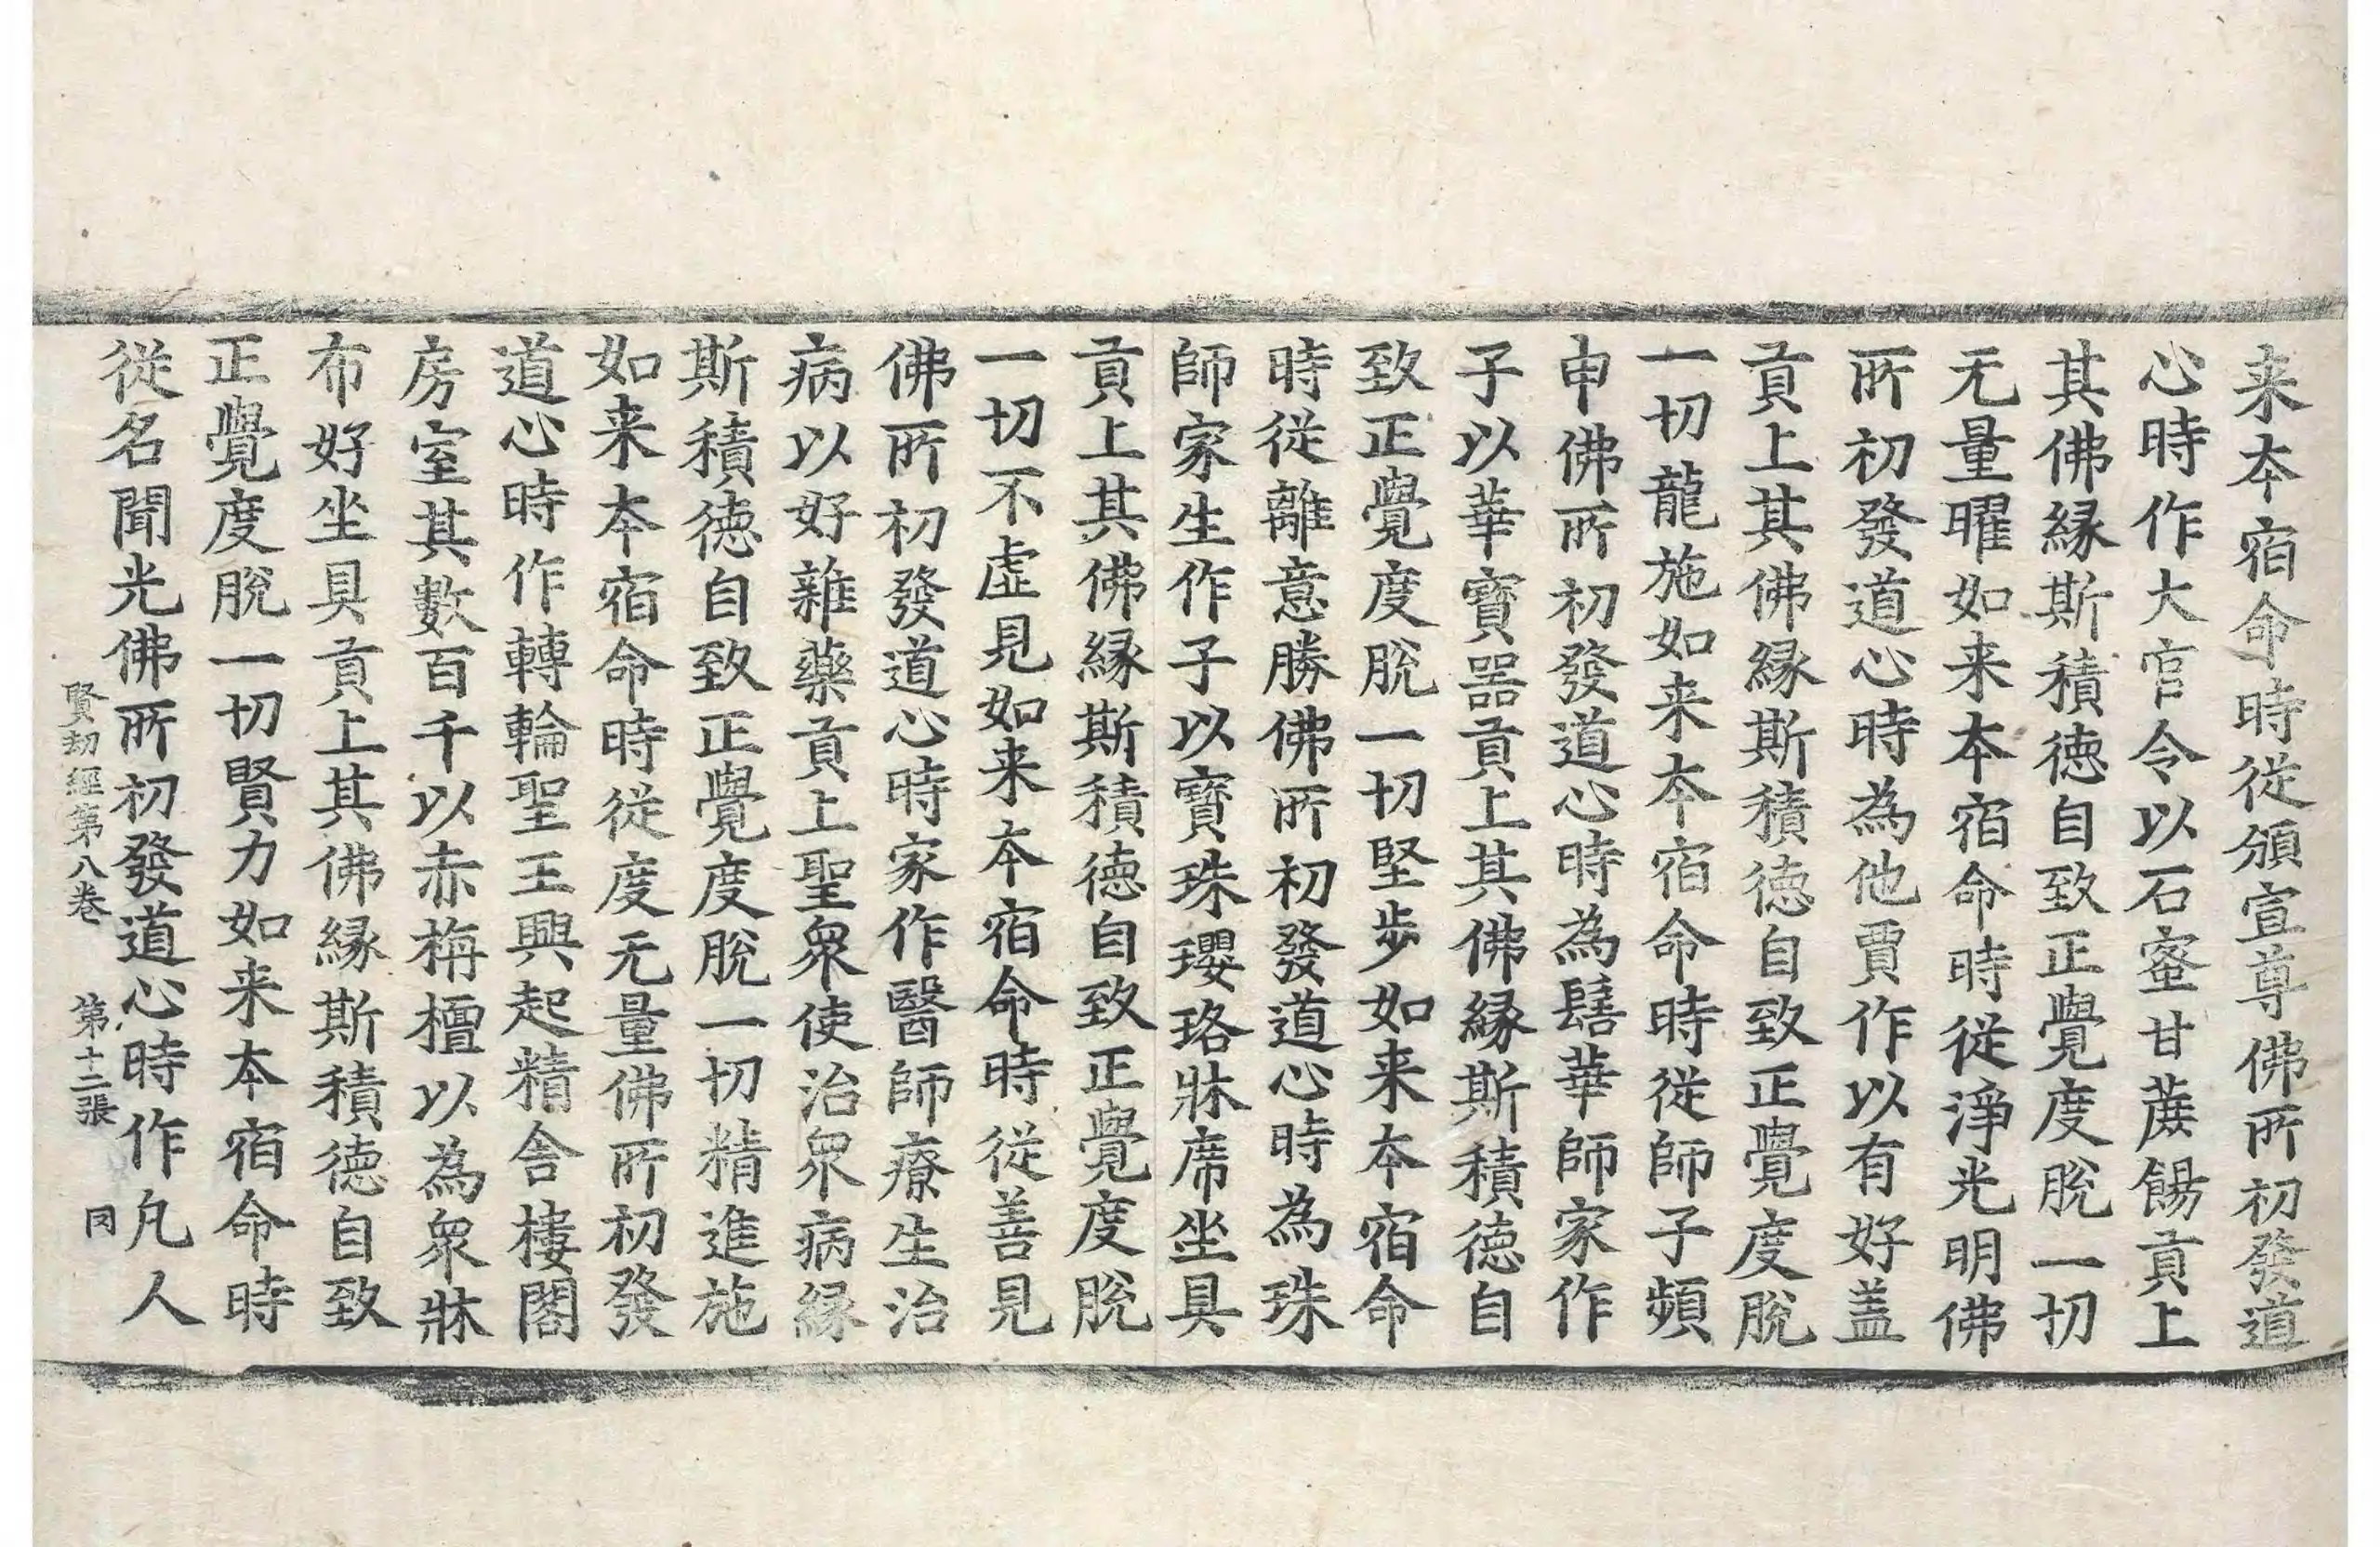 来本宿命時從頒宣尊佛所初發道
心時作大官令以石蜜甘蔗餳貢上
其佛縁斯積徳自致正覺度脫一切
无量曜如来本宿命時從淨光明佛
所初發道心時為他賈作以有好盖
貢上其佛縁斯積徳自致正覺度脫
一切龍施如来本宿命時從師子頻
申佛所初發道心時為鬘華師家作
子以華寶器貢上其佛縁斯積德自
致正覺度脫一切堅步如来本宿命
時從離意勝佛所初發道心時為珠
師家生作子以寶珠瓔珞牀席坐具
貢上其佛縁斯積徳自致正覺度脫
一切不虛見如来本宿命時從善見
佛所初發道心時家作醫師療生治
病以好雜藥貢上聖衆使治衆病縁
斯積徳自致正覺度脫一切精進施
如来本宿命時從度无量佛所初發
道心時作轉輪聖王興起精舎樓閣
房室其數百千以赤栴檀以為衆牀
布好坐具貢上其佛縁斯積徳自致
正覺度脫一切賢力如来本宿命時
從名聞光佛所初發道心時作凡人
賢劫經第八巻 第十二張 罔